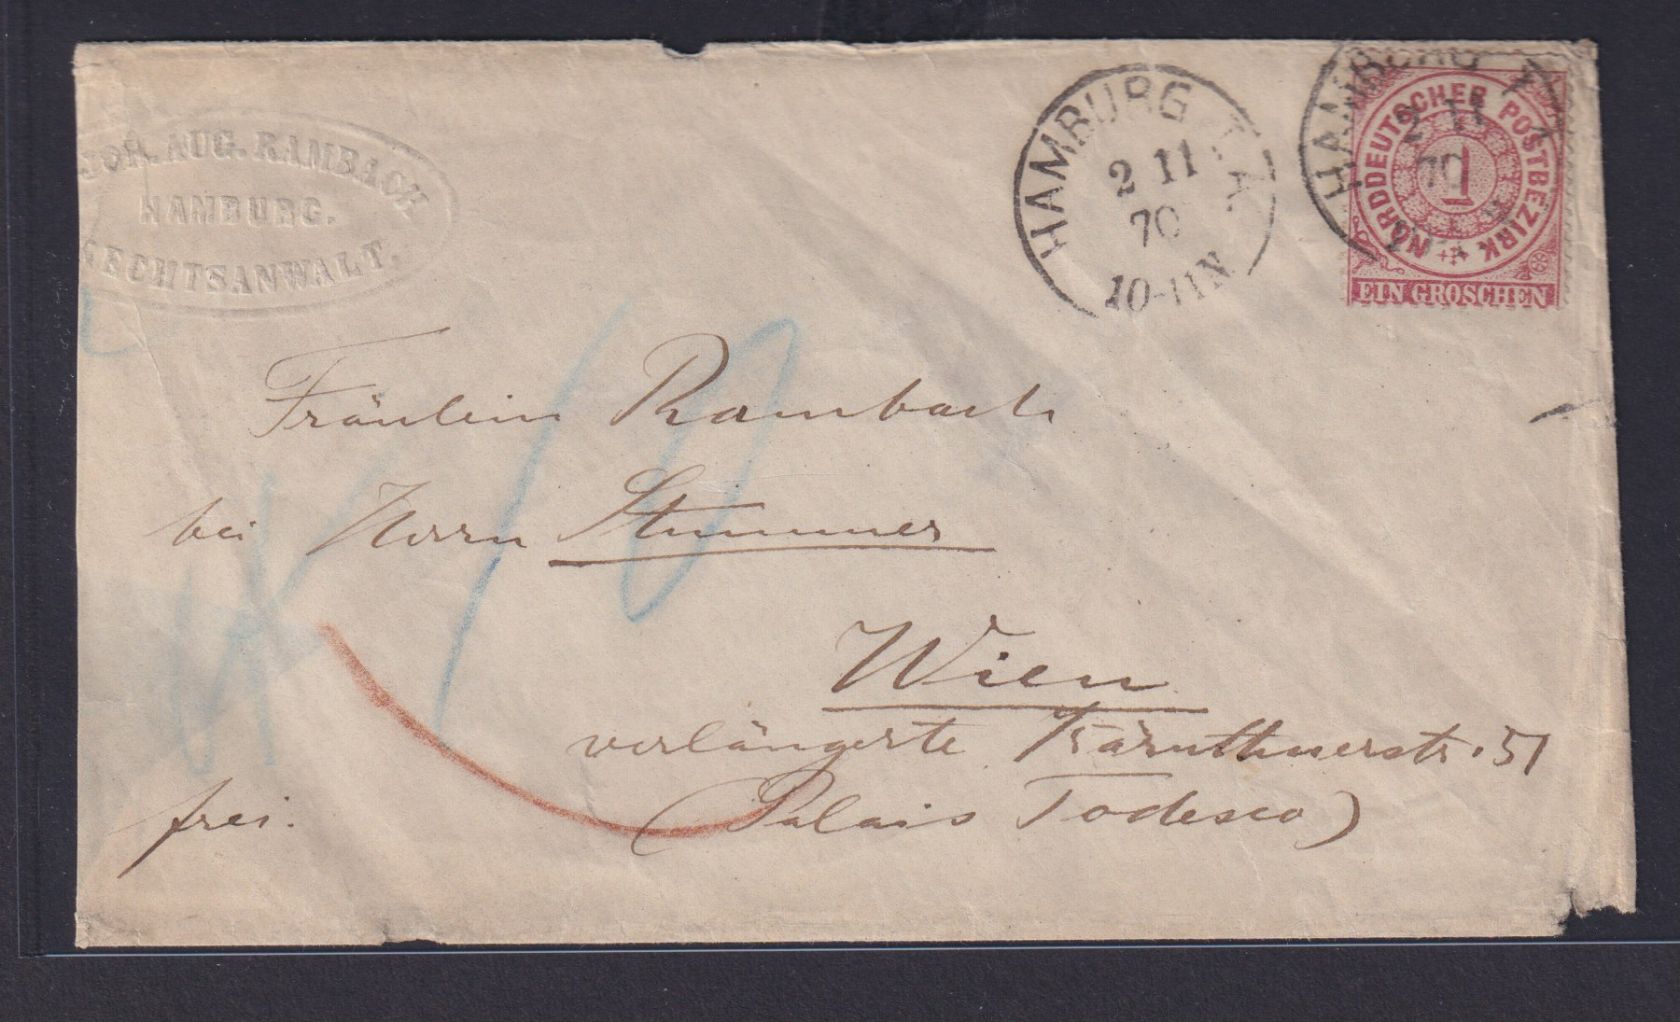 JOH. AUG. RAMBACH
HAMBURG.
RECHTSANWALT.
HAMBURG I.A.
2 11
70
10-11N.
HAMBURG
2 11
70
NORDDEUTSCHER POSTBEZIRK
1
EIN GROSCHEN
Fräulein Rambach
bei Herrn Stummer
Wien
verlängerte Kärnthnerstr. 51
(Palais Todesco)
frei.